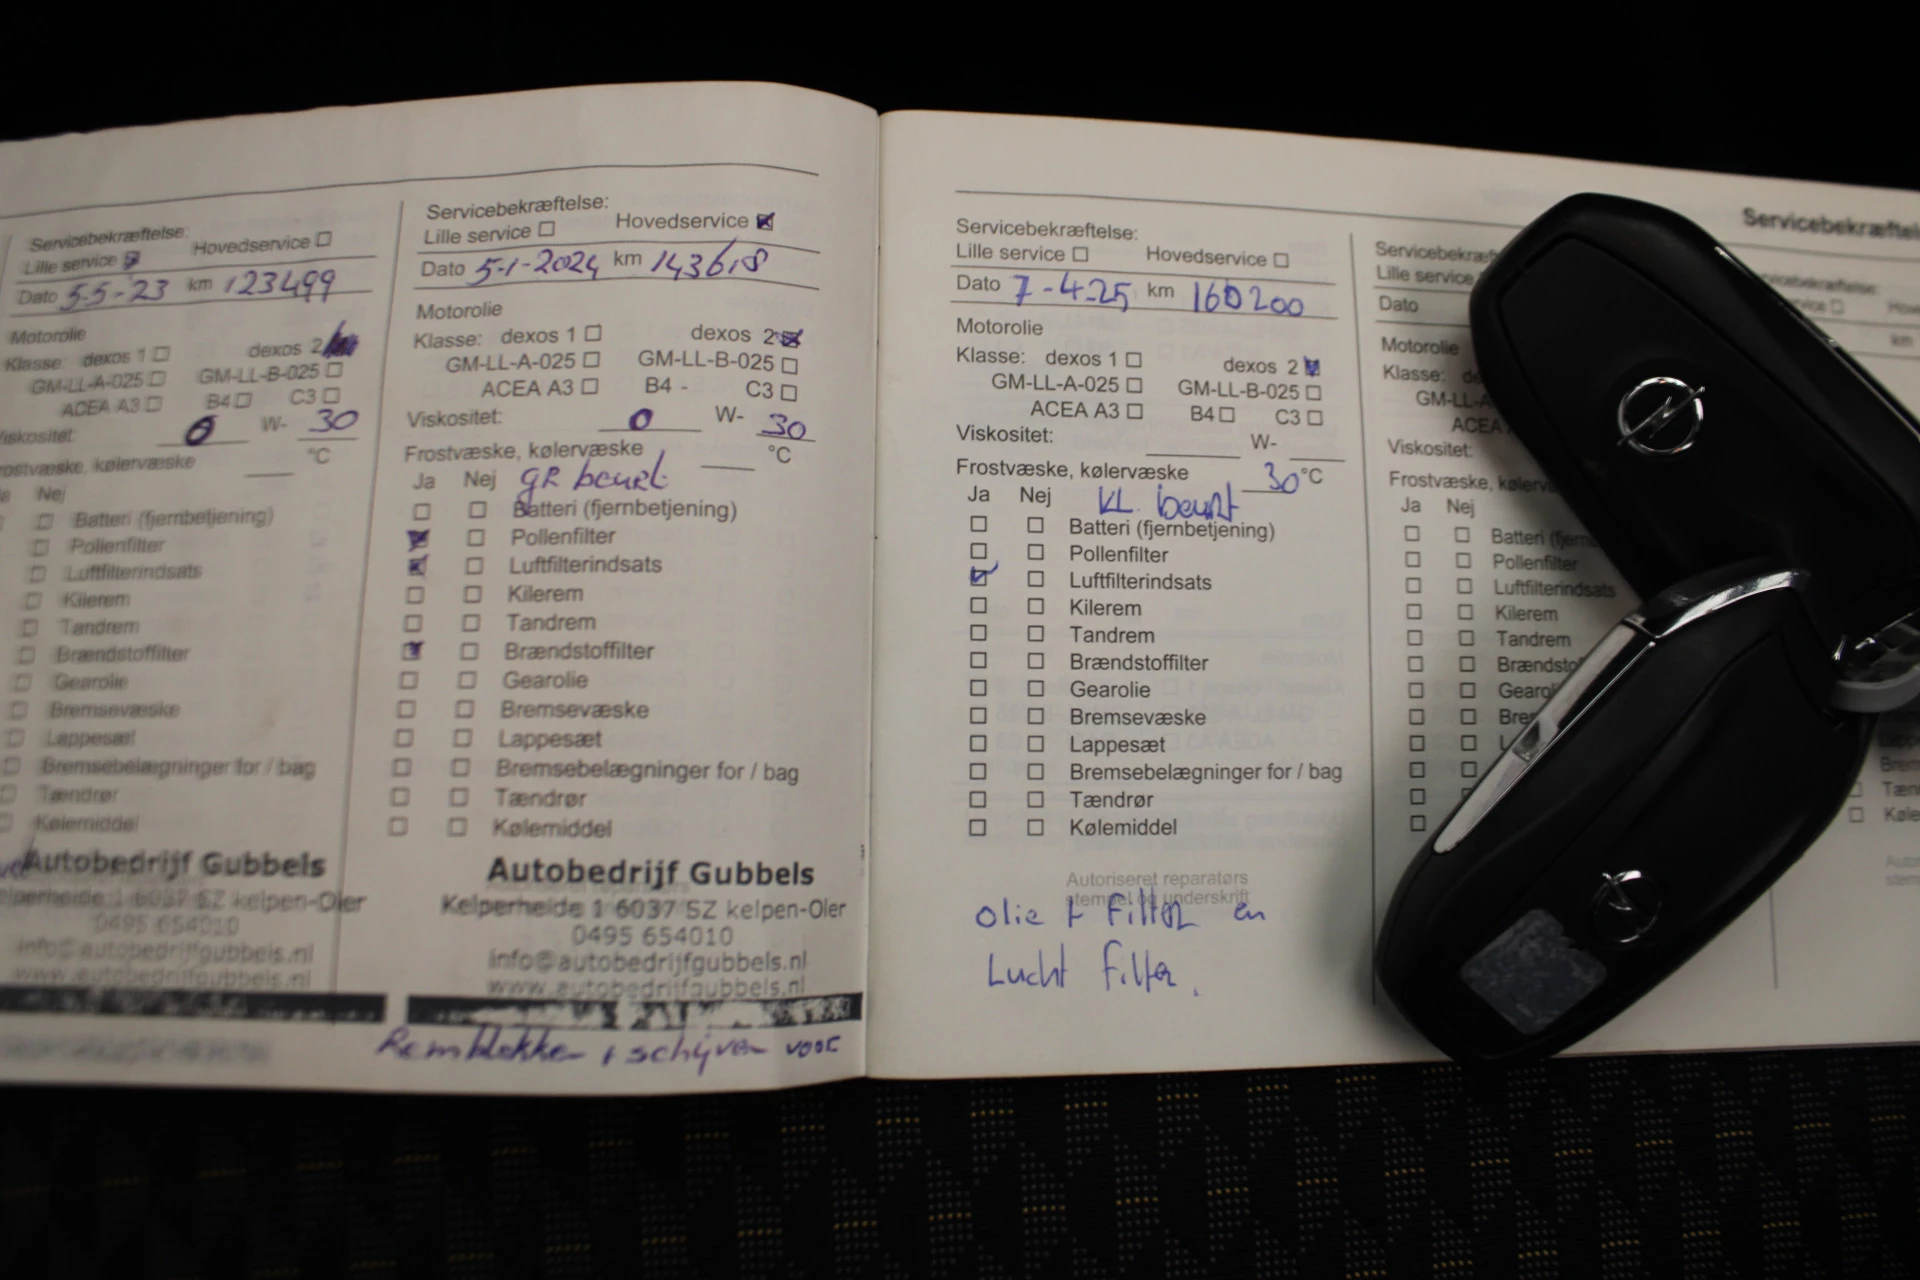 Servicebekræftelse:
Lille service Hovedservice
Dato 5-5-23 km 123499
Motorolie
Klasse: dexos 1 dexos 2
GM-LL-A-025 GM-LL-B-025
ACEA A3 B4 C3
Viskositet: 0 W- 30
Frostvæske, kølervæske °C
Nej
Batteri (fjernbetjening)
Pollenfilter
Luftfilterindsats
Kilerem
Tandrem
Brændstoffilter
Gearolie
Bremsevæske
Lappesæt
Bremsebelægninger for / bag
Tændrør
Kølemiddel
Autobedrijf Gubbels
Kelperheide 1 6037 SZ kelpen-Oler
0495 654010
info@autobedrijfgubbels.nl
www.autobedrijfgubbels.nl
Servicebekræftelse:
Lille service Hovedservice
Dato 5-1-2024 km 143618
Motorolie
Klasse: dexos 1 dexos 2
GM-LL-A-025 GM-LL-B-025
ACEA A3 B4 - C3
Viskositet: 0 W- 30
Frostvæske, kølervæske °C
Ja Nej gR beurt
Batteri (fjernbetjening)
Pollenfilter
Luftfilterindsats
Kilerem
Tandrem
Brændstoffilter
Gearolie
Bremsevæske
Lappesæt
Bremsebelægninger for / bag
Tændrør
Kølemiddel
Autobedrijf Gubbels
Kelperheide 1 6037 SZ kelpen-Oler
0495 654010
info@autobedrijfgubbels.nl
www.autobedrijfgubbels.nl
Remblokken + schijven voor
Servicebekræftelse:
Lille service Hovedservice
Dato 7-4-25 km 160200
Motorolie
Klasse: dexos 1 dexos 2
GM-LL-A-025 GM-LL-B-025
ACEA A3 B4 C3
Viskositet: W-
Frostvæske, kølervæske 30 °C
Ja Nej KL. beurt
Batteri (fjernbetjening)
Pollenfilter
Luftfilterindsats
Kilerem
Tandrem
Brændstoffilter
Gearolie
Bremsevæske
Lappesæt
Bremsebelægninger for / bag
Tændrør
Kølemiddel
Autoriseret reparatørs
stempel og underskrift
olie + Filter en
Lucht Filter.
Lille service
Dato
Motorolie
Klasse:
Viskositet:
Frostvæske,
Ja Nej
Batteri
Pollenfilter
Luftfilterindsats
Kilerem
Tandrem
km